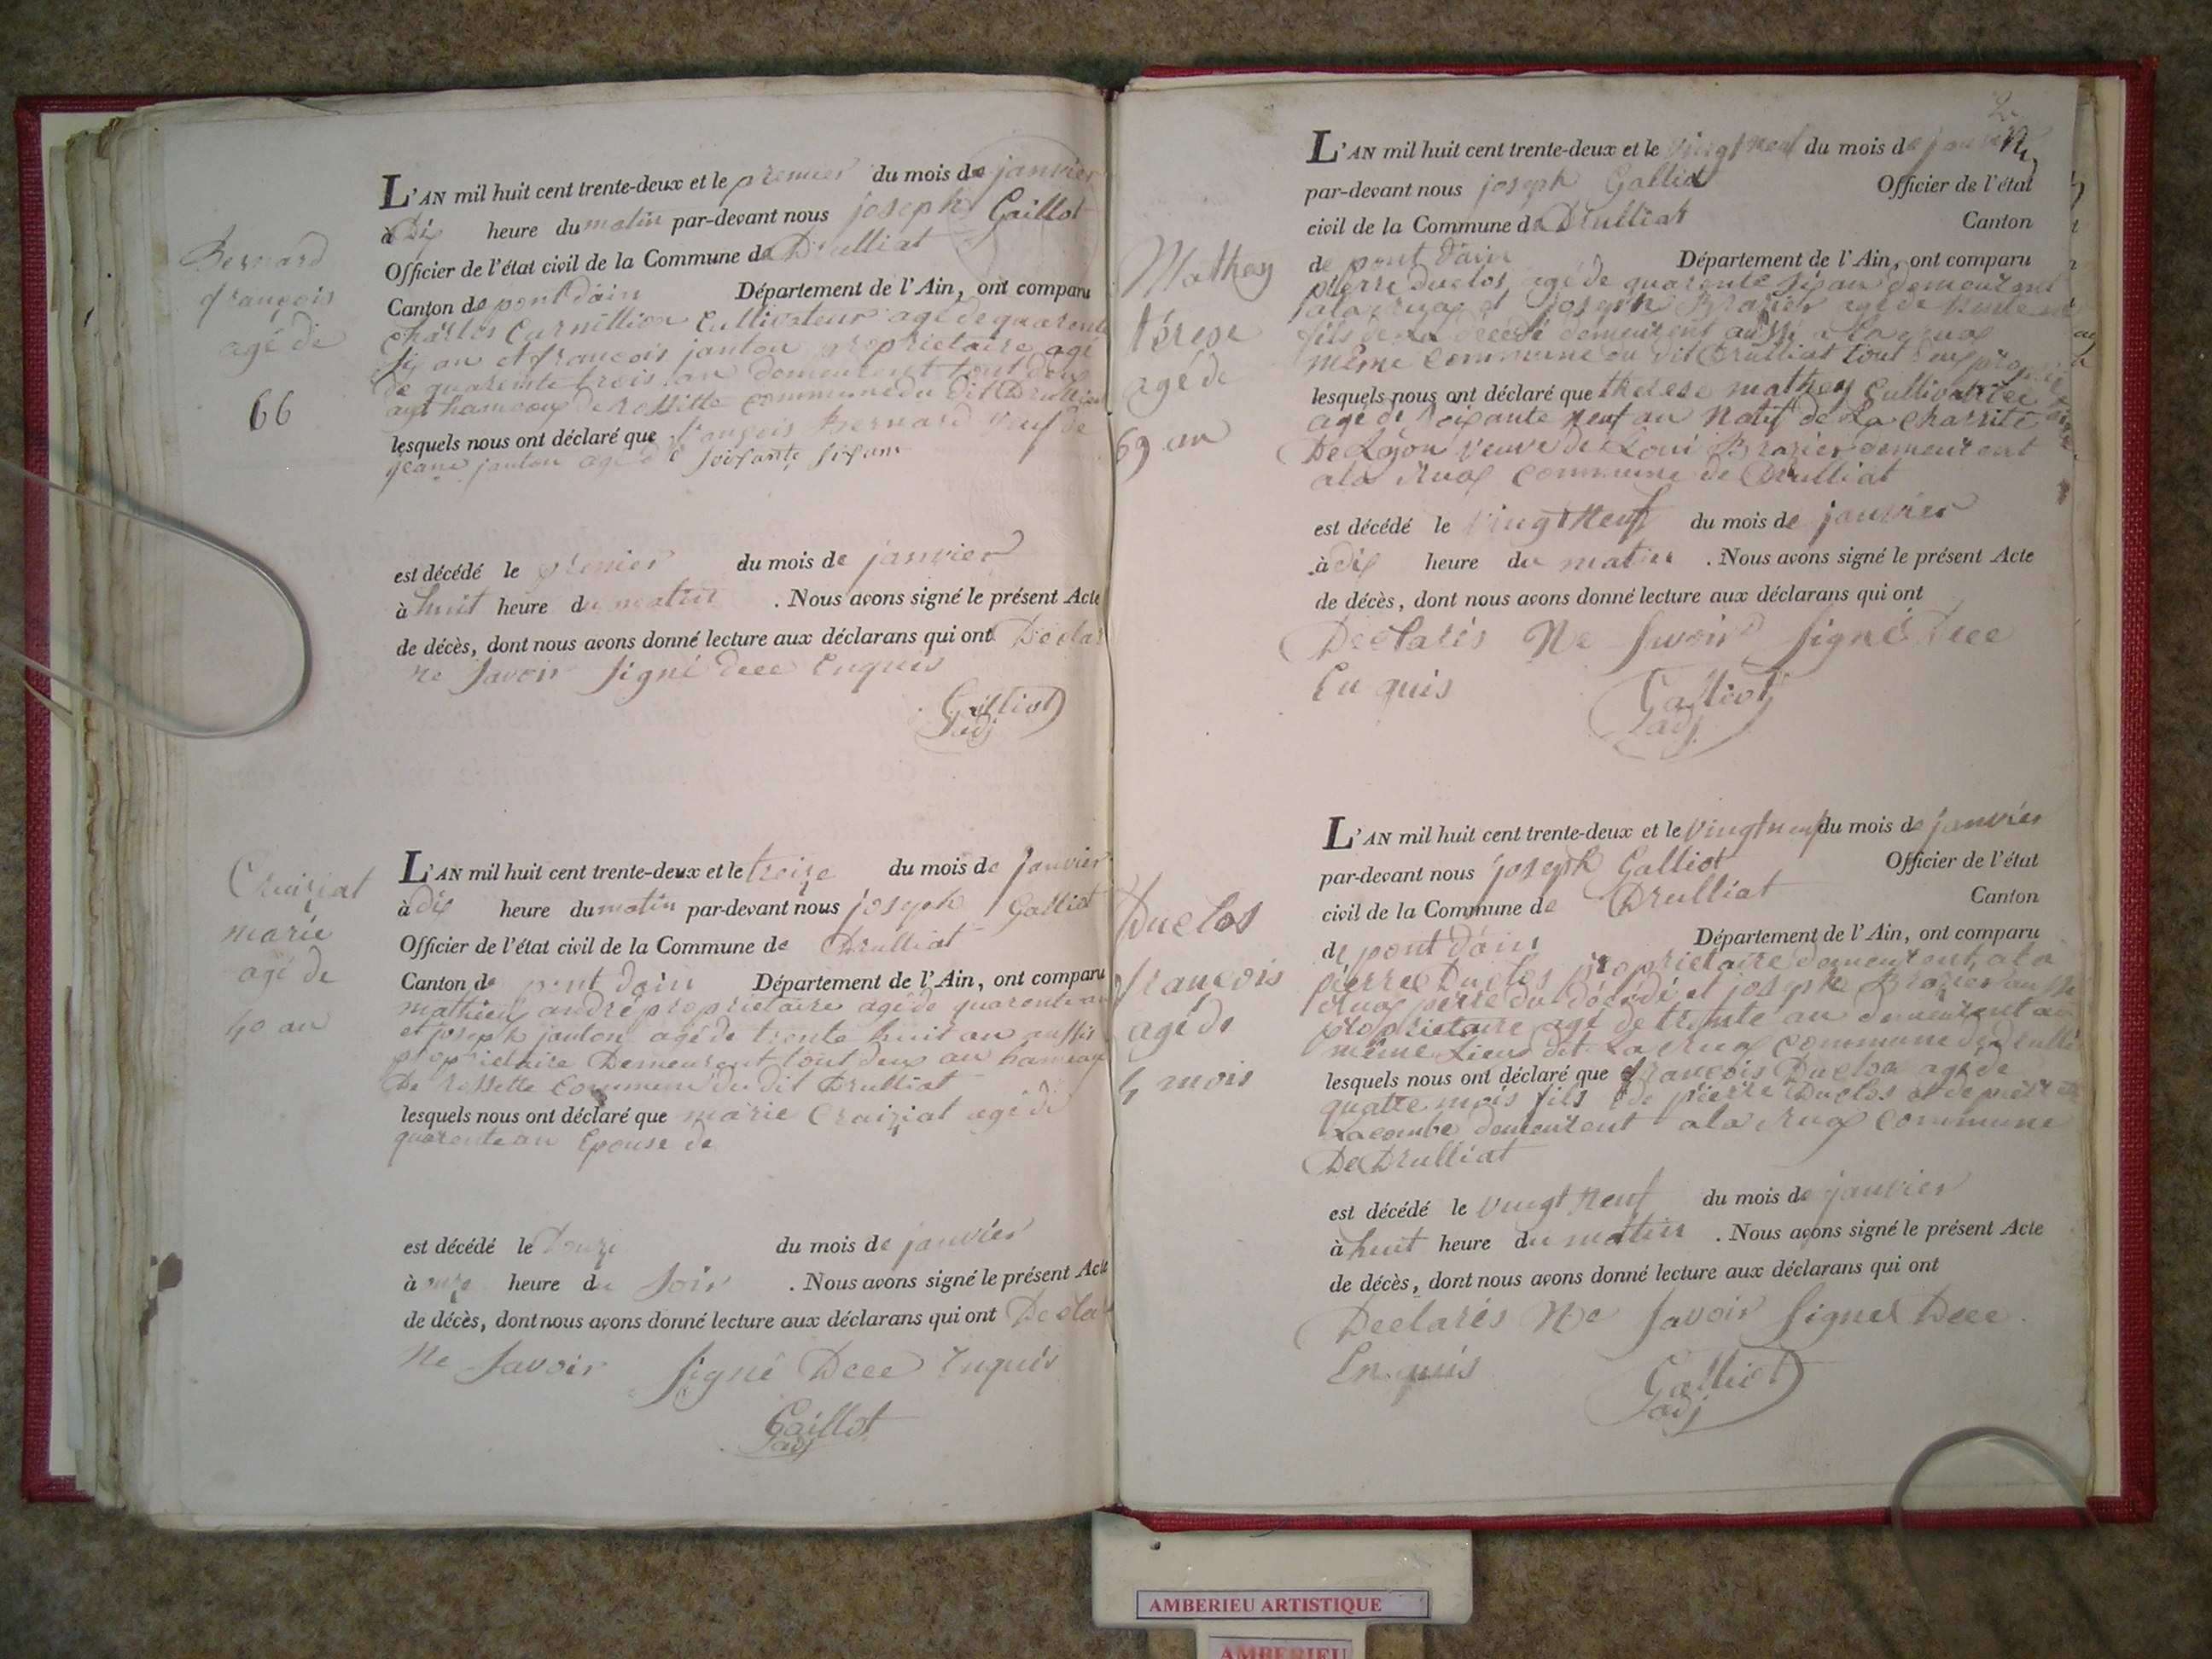 Bernard
françois
agé de
66
L'AN mil huit cent trente-deux et le premier du mois de janvier
à Dix heure du matin par-devant nous joseph Gaillot
Officier de l'état civil de la Commune de Drulliat
Canton de pont D'ain Département de l'Ain, ont comparu
charles Cultivateur agé de quarente
six an et françois janton proprietaire agé
de quarente trois an demeurent tout deux
aux hameaux de rossette commune du dit Drulliat
lesquels nous ont déclaré que françois Bernard veuf de
jeane janton agé de soixante six ans
est décédé le premier du mois de janvier
à huit heure du matin . Nous avons signé le présent Acte
de décès, dont nous avons donné lecture aux déclarans qui ont Declar
ne savoir signé Deee Enquis
Galliot
adj
Craiziat
marie
agé de
40 an
L'AN mil huit cent trente-deux et le treize du mois de janvier
à Dix heure du matin par-devant nous joseph Galliot
Officier de l'état civil de la Commune de Drulliat
Canton de pont Dain Département de l'Ain, ont comparu
mathieu andré proprietaire agé de quarente an
et joseph janton agé de trente huit an aussi
proprietaire Demeurent tout deux au hameaux
De rossette Commune du dit Drulliat
lesquels nous ont déclaré que marie Craiziat agé de
quarente an Epouse de
est décédé le Douze du mois de janvier
à onze heure du Soir . Nous avons signé le présent Acte
de décès, dont nous avons donné lecture aux déclarans qui ont Declar
Ne Savoir signé Deee Enquis
Gaillot
adj
2
Mathey
térese
agé de
69 an
L'AN mil huit cent trente-deux et le vingt neuf du mois de janvier
par-devant nous joseph Galliot Officier de l'état
civil de la Commune de Drulliat Canton
de pont D'ain Département de l'Ain, ont comparu
pierre Duclos agé de quarente six an demeurent
a la cruax et joseph Brazier agé de trente
fils de La decedé demeurent aussi a la cruax
même commune du dit Drulliat tout deux
lesquels nous ont déclaré que therese mathey Cultivatrice
agé de soixante neuf an Natif de La charrité
De Lyon veuve de Loui Brazier demeurent
a la Cruax Commune de Drulliat
est décédé le vingt Neuf du mois de janvier
à dix heure du matin . Nous avons signé le présent Acte
de décès, dont nous avons donné lecture aux déclarans qui ont
Declarés Ne Savoir Signé Deee
Enquis
Galliot
adj
Duclos
françois
agé de
4 mois
L'AN mil huit cent trente-deux et le vingt neuf du mois de janvier
par-devant nous joseph Galliot Officier de l'état
civil de la Commune de Drulliat Canton
de pont D'ain Département de l'Ain, ont comparu
pierre Duclos proprietaire demeurent a la
Cruax perre du décédé et joseph Brazier aussi
proprietaire agé de trente an demeurent au
même Lieu dit La Cruax commune de Drulli
lesquels nous ont déclaré que françois Duclos agé de
quatre mois fils de pierre Duclos et de
Lacombe demeurent a la Cruax Commune
De Drulliat
est décédé le vingt Neuf du mois de janvier
à huit heure du matin . Nous avons signé le présent Acte
de décès, dont nous avons donné lecture aux déclarans qui ont
Declarés Ne Savoir Signer Deee
Enquis
Galliot
adj
AMBERIEU ARTISTIQUE
AMBERIEU